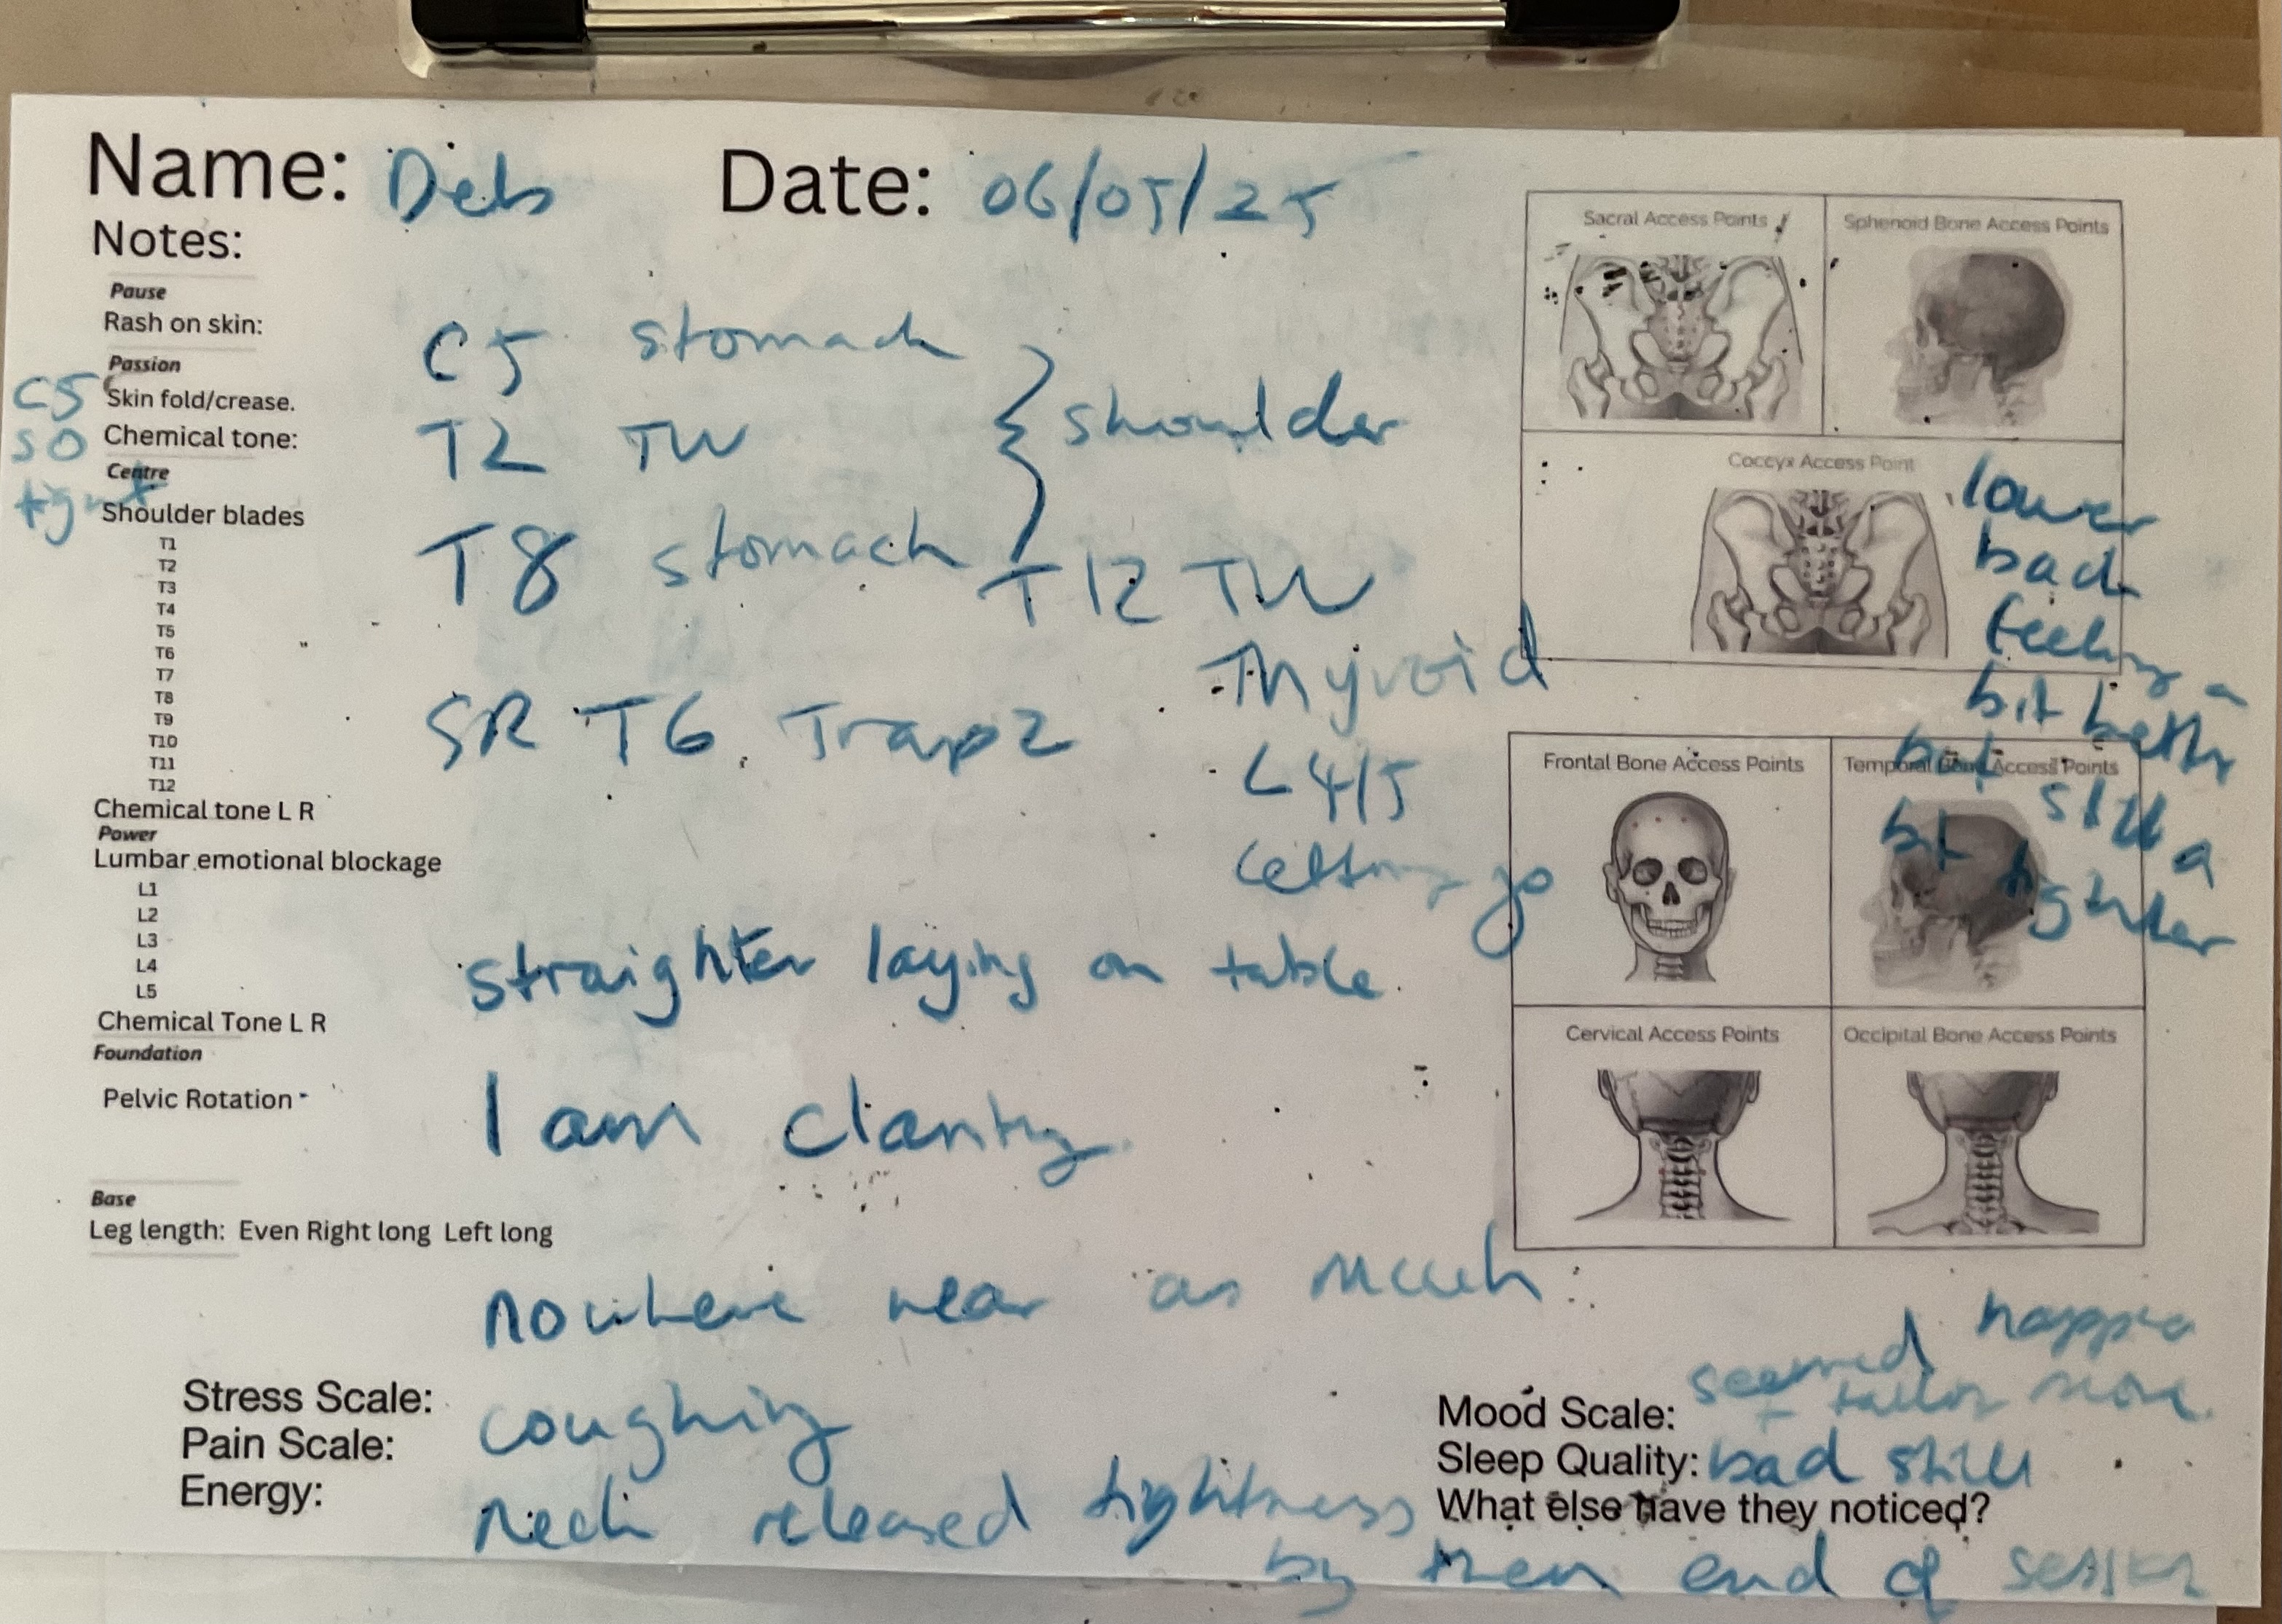 Name: Debs Date: 06/05/25
Notes:
Pause
Rash on skin:
Passion
Skin fold/crease.
Chemical tone:
Centre
Shoulder blades
T1
T2
T3
T4
T5
T6
T7
T8
T9
T10
T11
T12
Chemical tone L R
Power
Lumbar emotional blockage
L1
L2
L3
L4
L5
Chemical Tone L R
Foundation
Pelvic Rotation
Base
Leg length: Even Right long Left long
C5
so
tight
C5 stomach
T2 TW
shoulder
T8 stomach
T12 TW
Thyroid
SR T6 Trap2
L4/5
Letting go
straighter laying on table
I am clarity
nowhere near as much
coughing
neck released tightness
by then end of session
Stress Scale:
Pain Scale:
Energy:
Sacral Access Points
Sphenoid Bone Access Points
Coccyx Access Point
lower
back
feeling a
bit better
but still a
bit tighter
Frontal Bone Access Points
Temporal Bone Access Points
Cervical Access Points
Occipital Bone Access Points
Mood Scale: seemed happier
+ more
Sleep Quality: bad still
What else have they noticed?